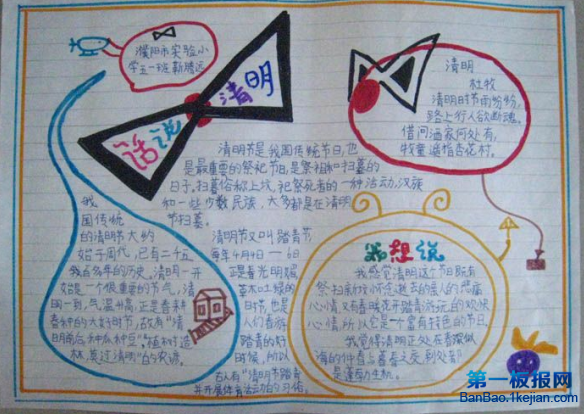 濮阳市实验小
学五一班靳腾远
话说清明
清明节是我国传统节日,也
是最重要的祭祀节日,是祭祖和扫墓的
日子,扫墓俗称上坟,祀祭死者的一种活动,汉族
和一些少数民族,大多都是在清明
节扫墓。
我
国传统
的清明节大约
始于周代,已有二千五
百多年的历史。清明一开
始是一个很重要的节气,清
明一到,气温升高,正是春耕
春种的大好时节,故有"清
明前后,种瓜种豆""植树造
林,莫过清明"的农谚。
清明节又叫踏青节
每年4月4日—6日
正是春光明媚
草木吐绿的
时节,也是
人们春游
踏青的好
时候,所以
古人有"清明节踏青
并开展体育活动的习俗
清明
杜牧
清明时节雨纷纷,
路上行人欲断魂。
借问酒家何处有,
牧童遥指杏花村。
我想说
我感觉清明这个节日既有
祭扫新坟怀念逝去的亲人的悲痛
心情,又有春暖花开踏青游玩的欢快
心情,所以它是一个富有特色的节日。
我觉得清明正处在春暖
是蓬勃生机。
第一板报网
BanBao.1kejian.com